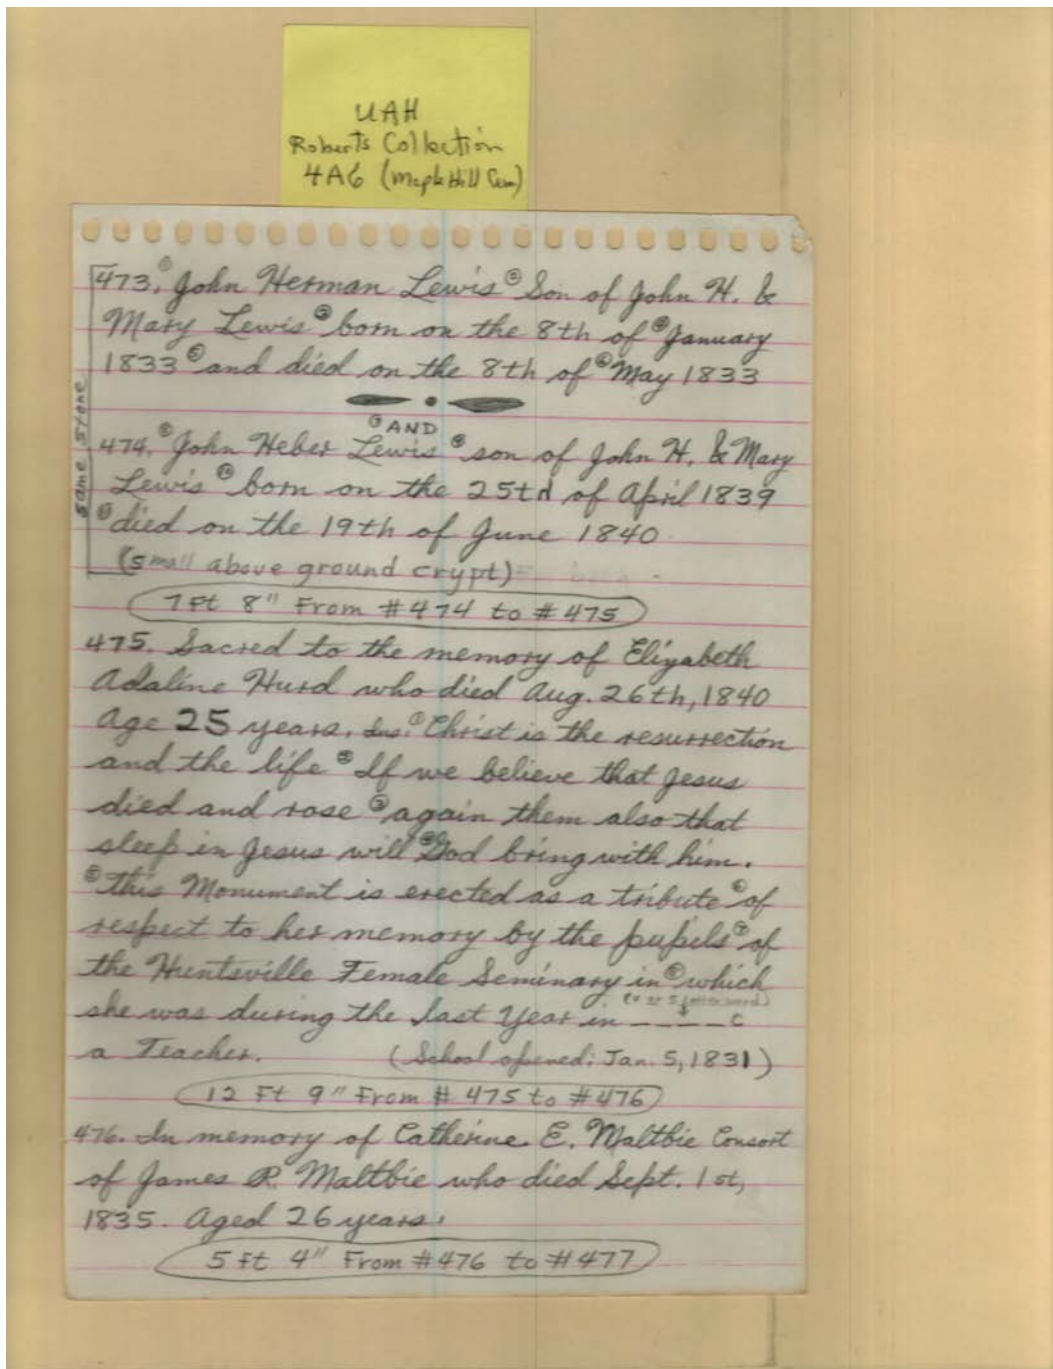 UAH
Roberts Collection
4A6 (Maple Hill Cem)
473. ① John Herman Lewis ② Son of John H. &
Mary Lewis ③ born on the 8th of ④ January
1833 ⑤ and died on the 8th of ⑥ May 1833
⑦ AND
474. ⑧ John Heber Lewis ⑨ son of John H. & Mary
Lewis ⑩ born on the 25td of April 1839
⑪ died on the 19th of June 1840
(small above ground crypt)
same stone
7 ft 8" From #474 to #475
475. Sacred to the memory of Elizabeth
Adaline Hurd who died Aug. 26th, 1840
Age 25 years. Ins: ① Christ is the resurrection
and the life ② If we believe that Jesus
died and rose ③ again them also that
sleep in Jesus will ④ God bring with him.
⑤ this Monument is erected as a tribute ⑥ of
respect to her memory by the pupils ⑦ of
the Huntsville Female Seminary in ⑧ which
(4 or 5 letter word)
she was during the last Year in _ _ _ _ c
a Teacher. (School opened: Jan. 5, 1831)
12 Ft 9" From # 475 to #476
476. In memory of Catherine E. Maltbie Consort
of James R. Maltbie who died Sept. 1st,
1835. Aged 26 years.
5 ft 4" From #476 to #477